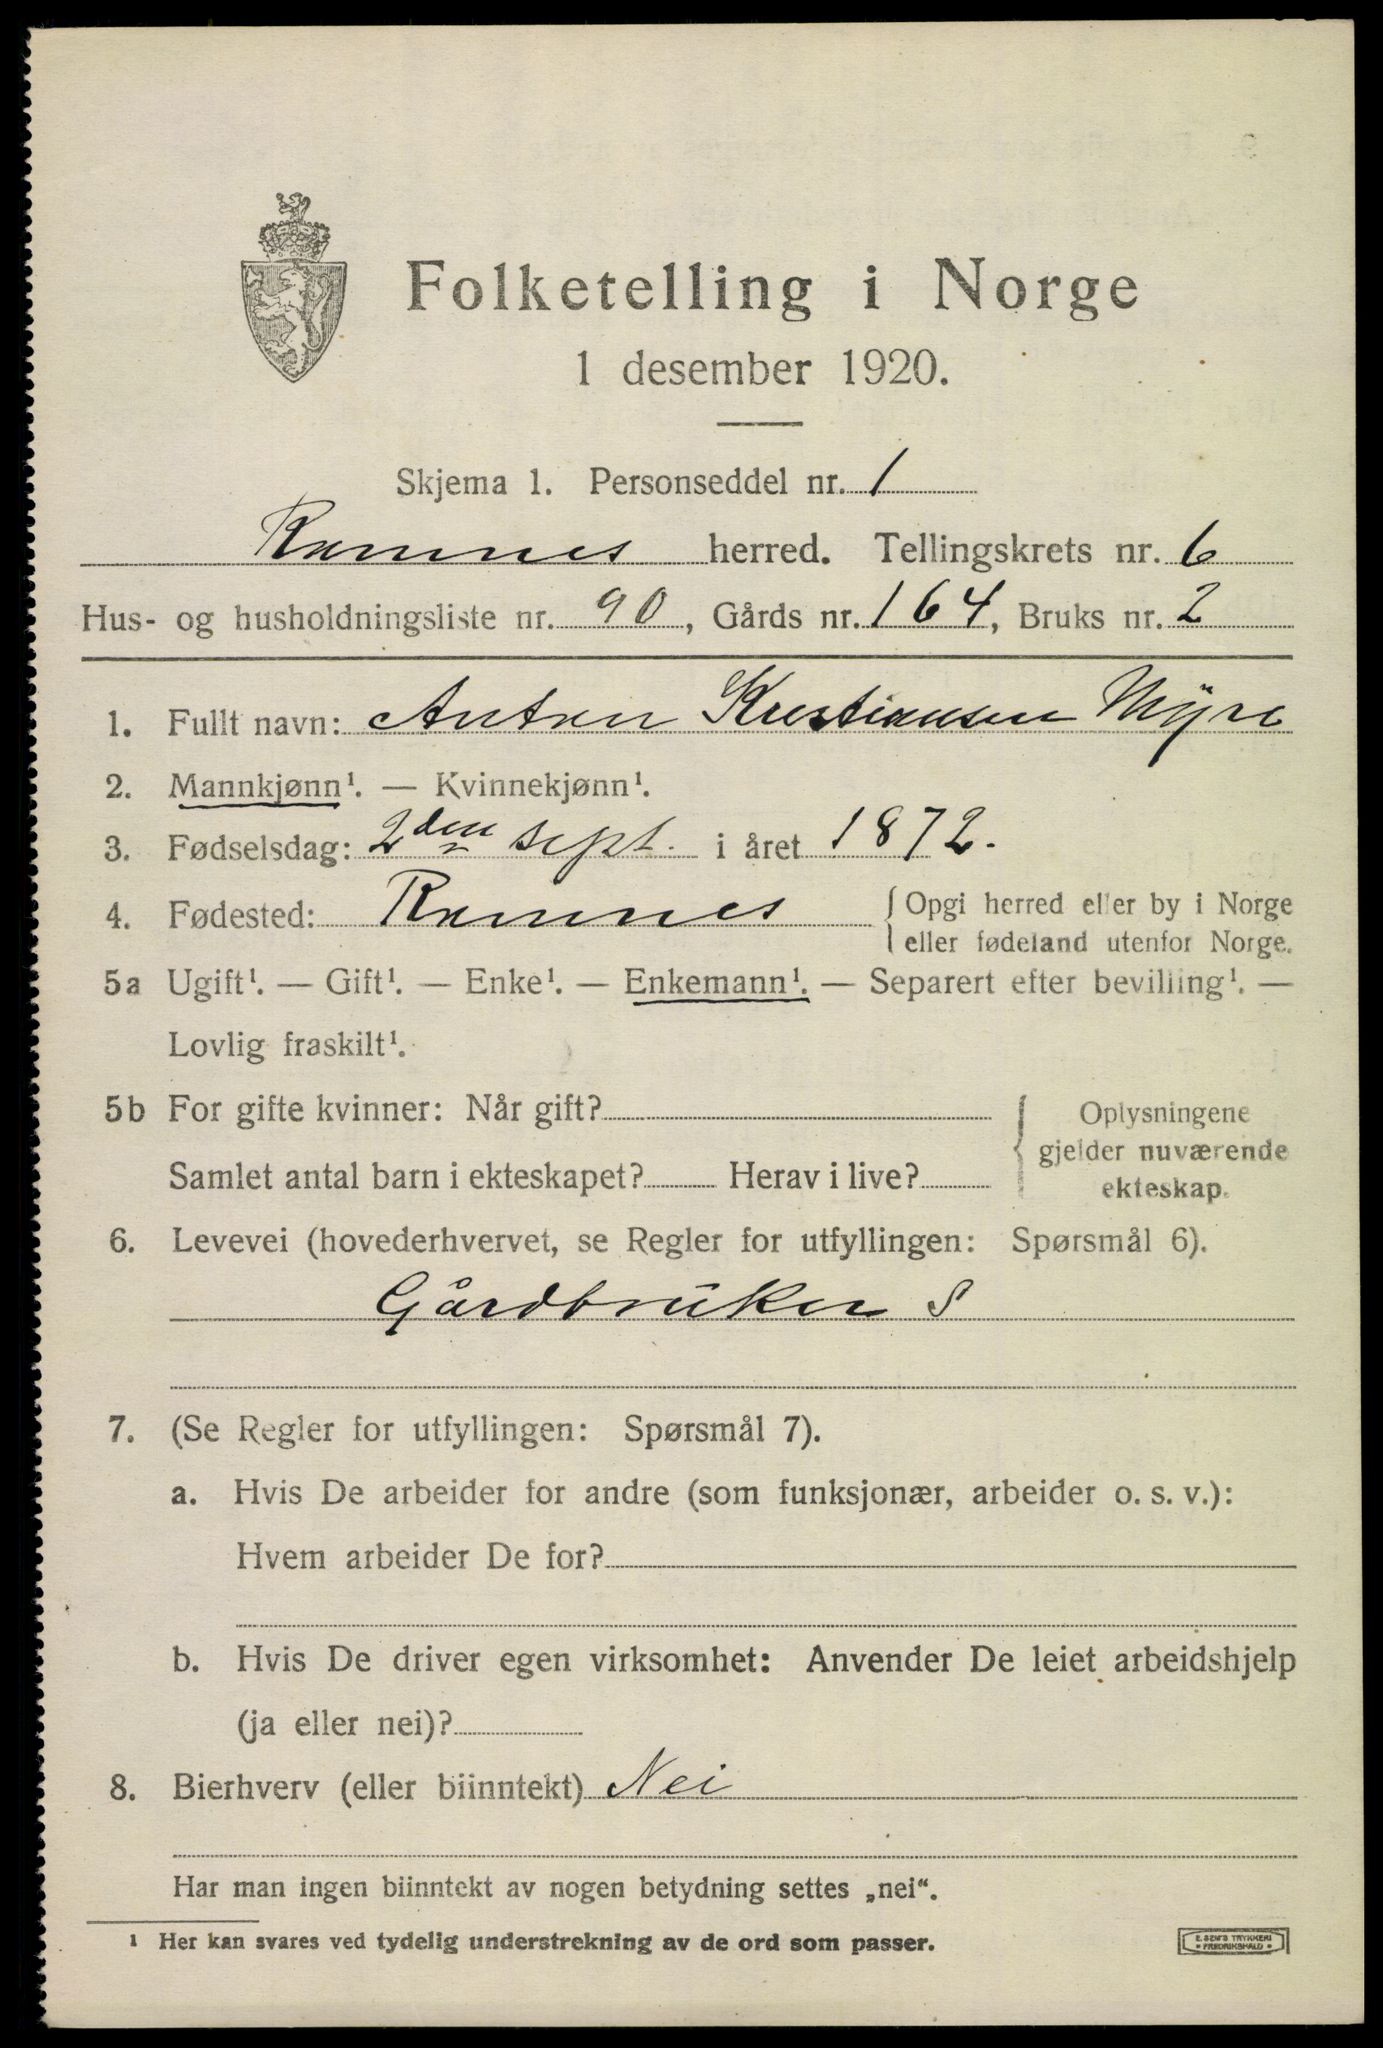 Folketelling i Norge
1 desember 1920.
Skjema 1. Personseddel nr. 1
Ramnes herred. Tellingskrets nr. 6
Hus- og husholdningsliste nr. 90, Gårds nr. 164, Bruks nr. 2
1. Fullt navn: Anton Kristiansen Myre
2. Mannkjønn¹. — Kvinnekjønn¹.
3. Fødselsdag: 2den sept. i året 1872.
4. Fødested: Ramnes { Opgi herred eller by i Norge
eller fødeland utenfor Norge.
5a Ugift¹. — Gift¹. — Enke¹. — Enkemann¹. — Separert efter bevilling¹. —
Lovlig fraskilt¹.
5b For gifte kvinner: Når gift? { Oplysningene
gjelder nuværende
Samlet antal barn i ekteskapet? Herav i live? ekteskap.
6. Levevei (hovederhvervet, se Regler for utfyllingen: Spørsmål 6).
Gårdbruker S
7. (Se Regler for utfyllingen: Spørsmål 7).
a. Hvis De arbeider for andre (som funksjonær, arbeider o. s. v.):
Hvem arbeider De for?
b. Hvis De driver egen virksomhet: Anvender De leiet arbeidshjelp
(ja eller nei)?
8. Bierhverv (eller biinntekt) Nei
Har man ingen biinntekt av nogen betydning settes „nei“.
¹ Her kan svares ved tydelig understrekning av de ord som passer.
E. SEM'S TRYKKERI
* FREDRIKSHALD *